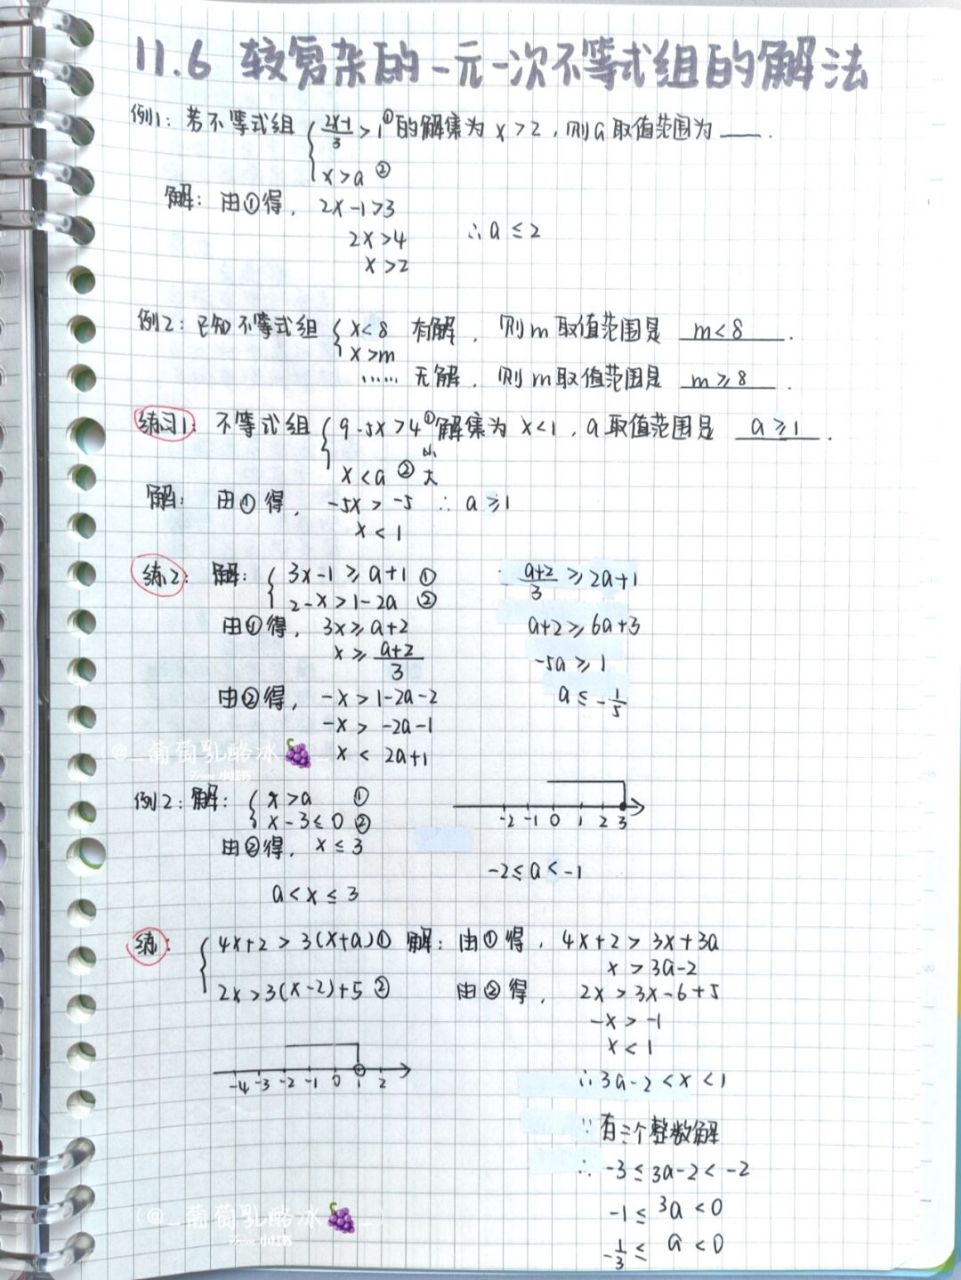 11.6 较复杂的一元一次不等式组的解法
例1: 若不等式组 { (2x-1)/3 > 1 ① 的解集为 x > 2, 则a取值范围为 ___.
x > a ②
解: 由①得, 2x-1>3
2x>4 ∴a ≤ 2
x>2
例2: 已知不等式组 { x<8 有解, 则m取值范围是 m<8.
x>m
...... 无解, 则m取值范围是 m≥8.
练习1: 不等式组 { 9-5x>4 ① 解集为 x<1, a取值范围是 a≥1.
小
x<a ② 大
解: 由①得, -5x > -5 ∴ a≥1
x<1
练2: 解: { 3x-1≥a+1 ①
2-x>1-2a ②
由①得, 3x≥a+2
x≥(a+2)/3
由②得, -x>1-2a-2
-x > -2a-1
x < 2a+1
(a+2)/3 ≥2a+1
a+2≥6a+3
-5a≥1
a≤-1/5
@_葡萄乳酪冰🍇_
小红书
例2: 解: { x>a ①
x-3≤0 ②
由②得, x≤3
a<x≤3
-2 -1 0 1 2 3
-2≤a<-1
练: { 4x+2>3(x+a) ①
2x>3(x-2)+5 ②
解: 由①得, 4x+2>3x+3a
x>3a-2
由②得, 2x>3x-6+5
-x>-1
x<1
-4 -3 -2 -1 0 1 2
∴3a-2<x<1
∵有三个整数解
∴ -3≤3a-2<-2
-1≤3a<0
-1/3≤ a<0
@_葡萄乳酪冰🍇_
小红书